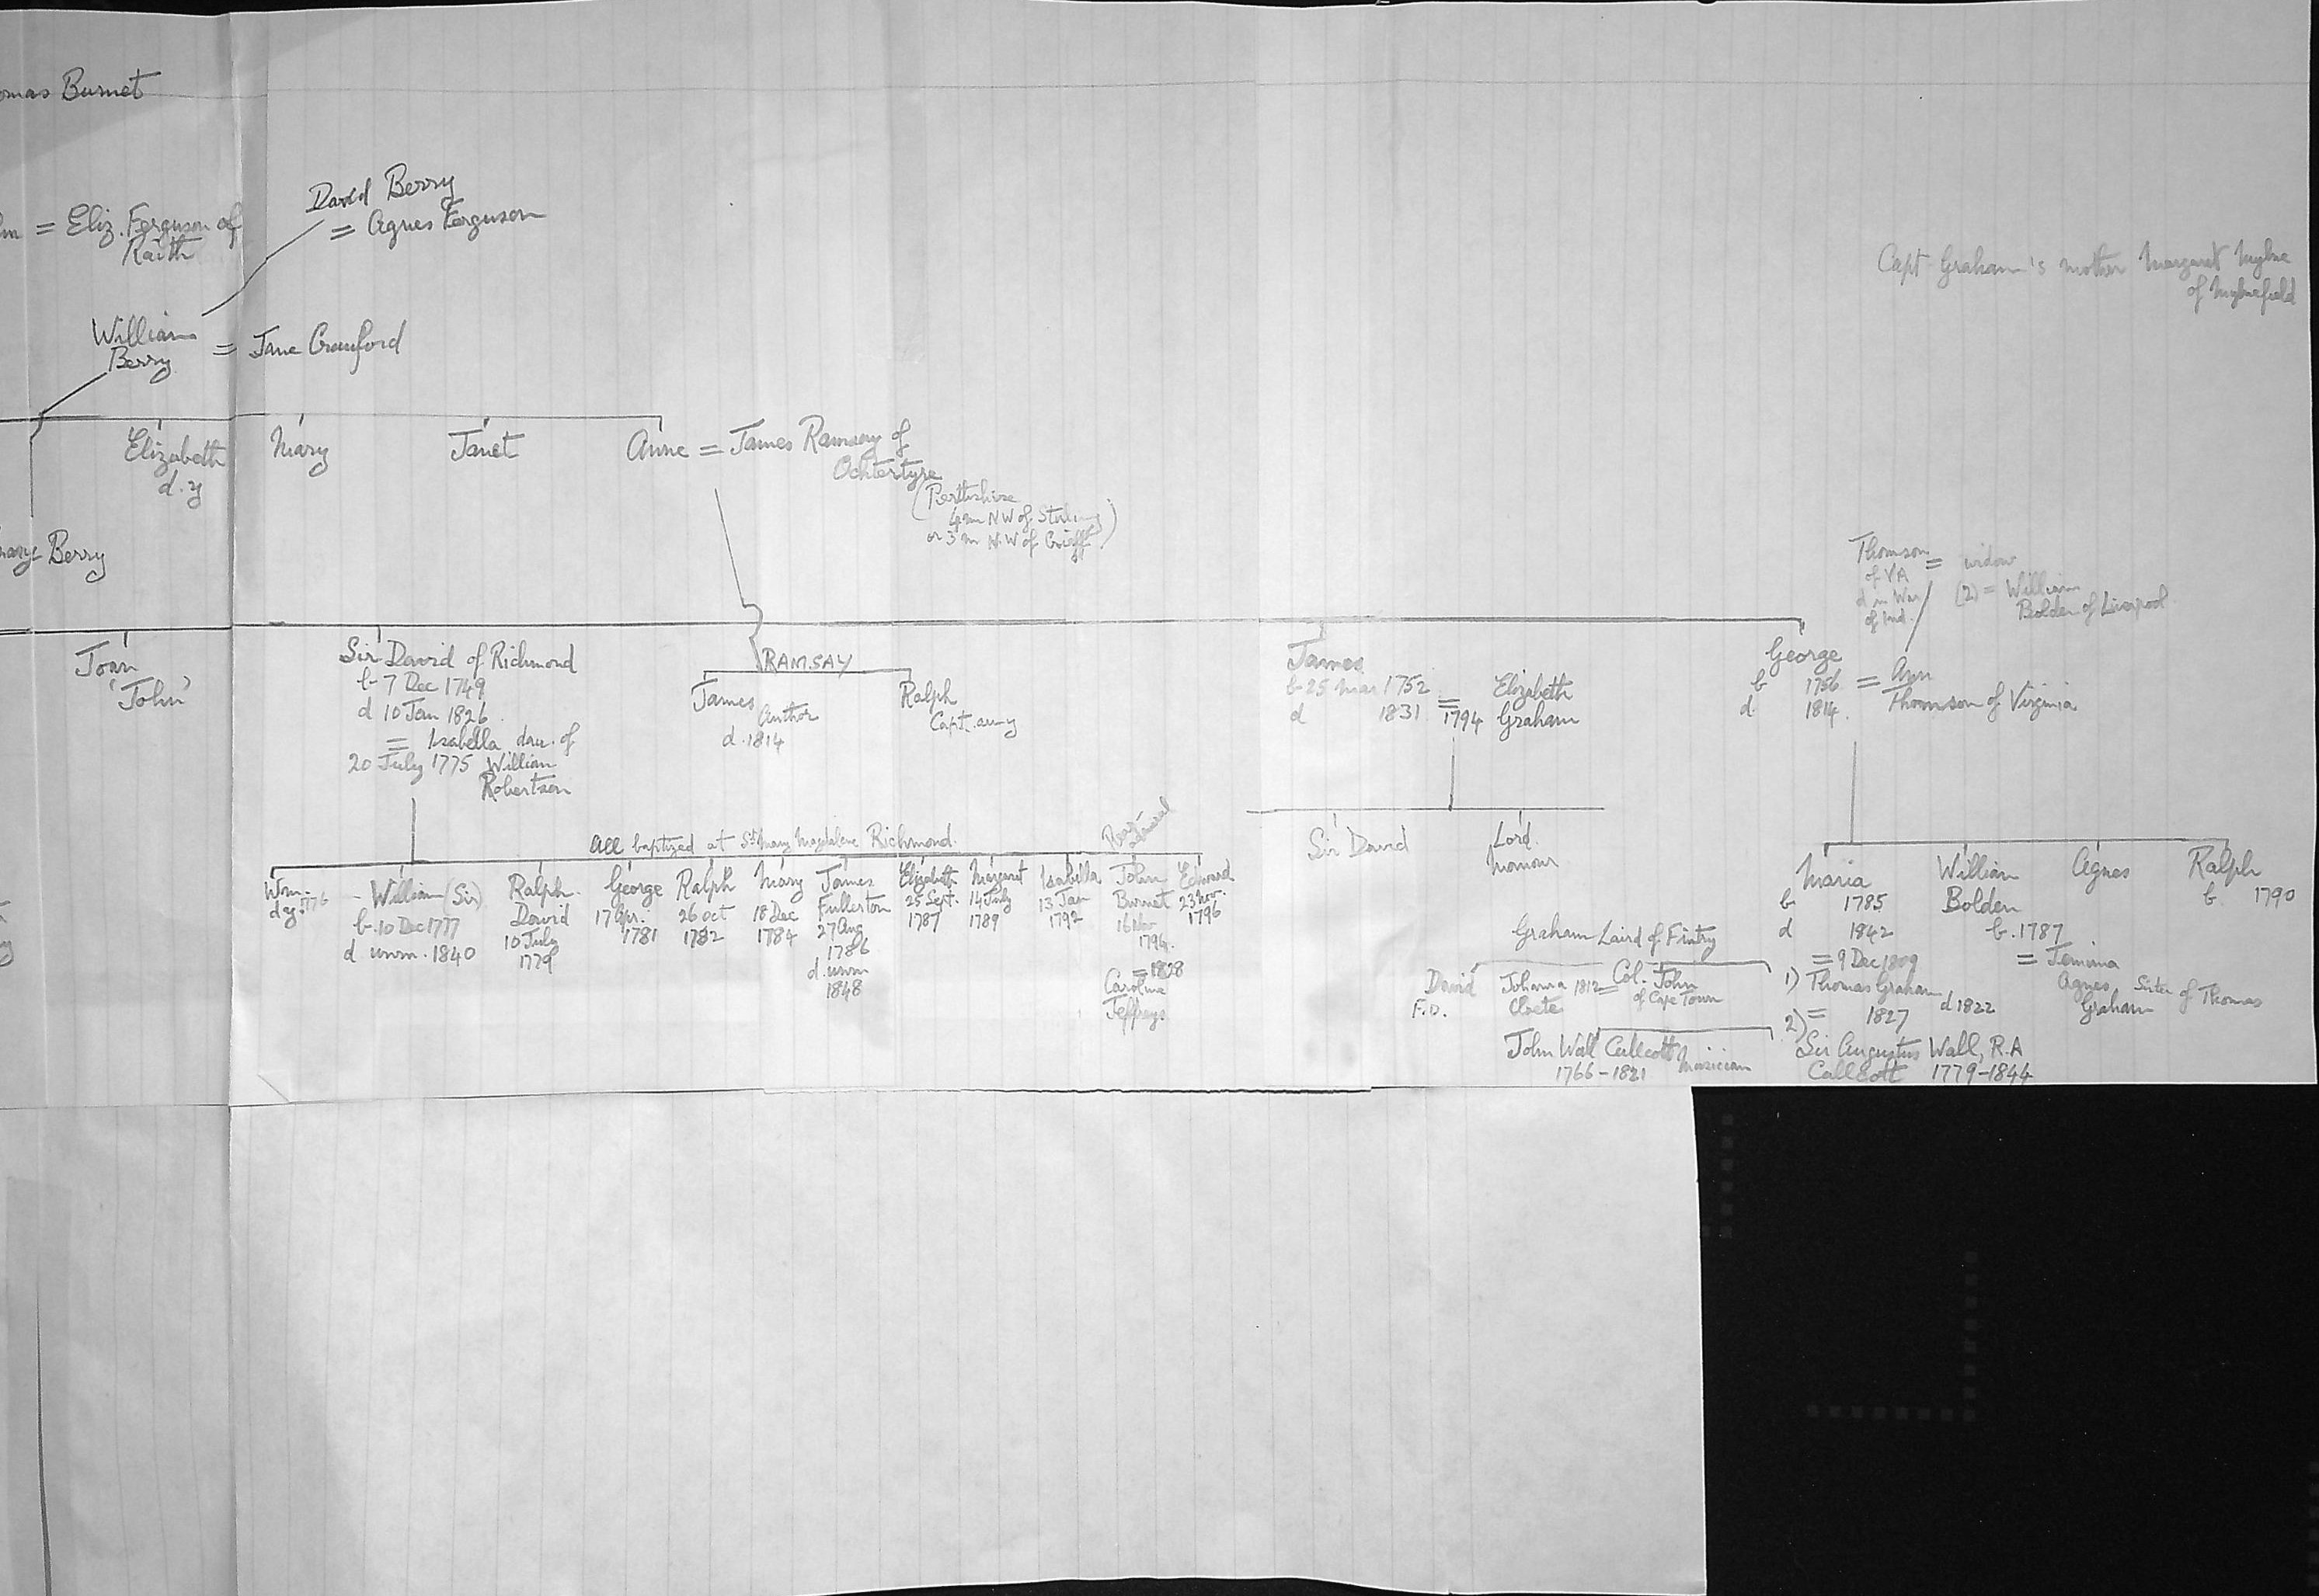 omas Burnet
David Berry
= Agnes Ferguson
= Eliz. Ferguson of
Raith
Capt Graham's mother Margaret Mylne
of Mylnefield
William
Berry
= Jane Crauford
Elizabeth
d.y
Mary
Janet
Anne = James Ramsay of
Ochtertyre
(Perthshire
4m NW of Stirling
or 3m N.W of Crieff)
Berry
Thomson = widow
of VA
d in War
of Ind.
(2) = William
Bolden of Liverpool
Joan
'John'
Sir David of Richmond
b 7 Dec 1749
d 10 Jan 1826
= Isabella dau. of
20 July 1775 William
Robertson
RAMSAY
James
Author
d. 1814
Ralph
Capt. army
James
b 25 Mar 1752
d 1831
=
1794
Elizabeth
Graham
George
b 1756
d 1814
= Ann
Thomson of Virginia
All baptized at St Mary Magdalene Richmond.
Wm. 1776
d.y.
William (Sir)
b. 10 Dec 1777
d unm. 1840
Ralph
David
10 July
1779
George
17 Apr.
1781
Ralph
26 Oct
1782
Mary
18 Dec
1784
James
Fullerton
27 Aug
1786
d. unm
1848
Elizabeth
25 Sept.
1787
Margaret
14 July
1789
Isabella
13 Jan
1792
John
Burnet
16 Nov
1794
= 1828
Caroline
Jeffreys
Edward
23 Nov.
1796
Sir David
Lord
Graham Laird of Fintry
David
F.O.
Johanna 1812 = Col. John
Cloete
of Cape Town
John Wall Callcott Musician
1766-1821
Maria
b 1785
d 1842
= 9 Dec 1809
1) Thomas Graham d 1822
2) = 1827
Sir Augustus Wall, R.A
Callcott 1779-1844
William
Bolden
b. 1787
= Jemima
Agnes
Graham
Sister of Thomas
Agnes
Ralph
b. 1790